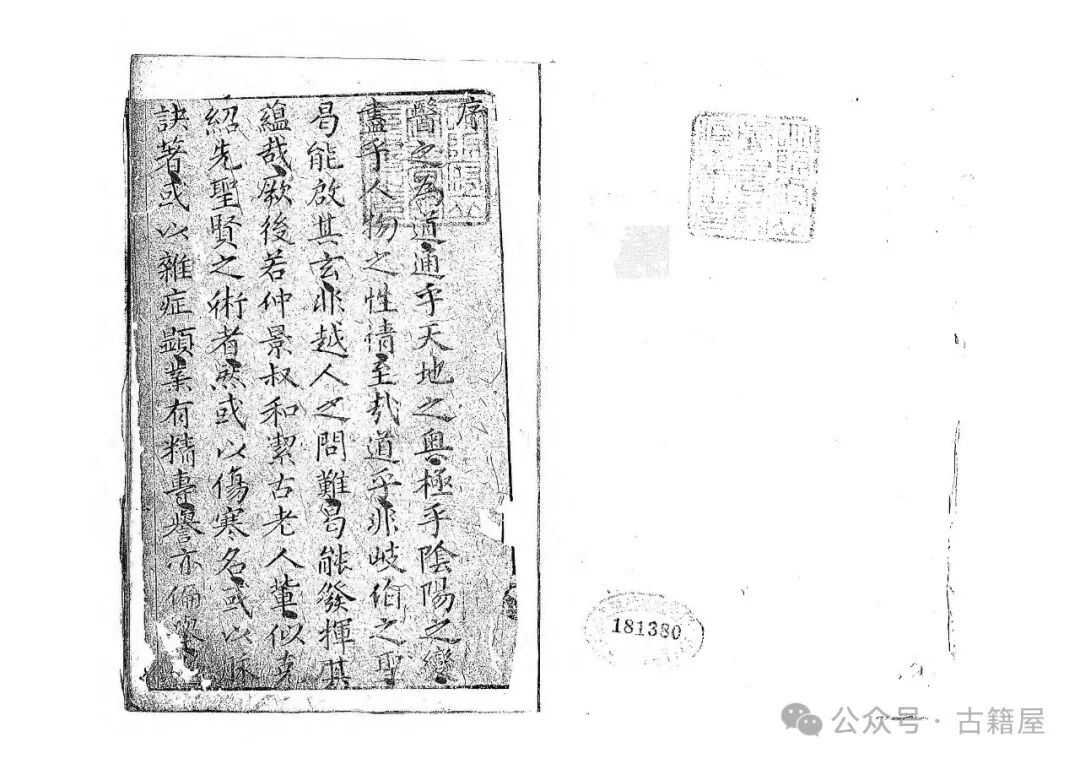 序
醫之為道通乎天地之奧極乎陰陽之變
盡乎人物之性情至哉道乎非岐伯之聖
曷能啟其玄非越人之問難曷能發揮其
蘊哉厥後若仲景叔和潔古老人輩似克
紹先聖賢之術者然或以傷寒名或以脉
訣著或以雜症顕業有精專譽亦偏
181380
公众号·古籍屋